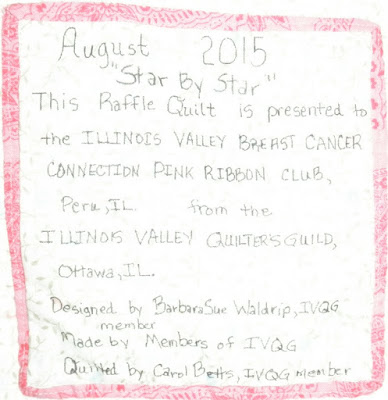 August 2015
"Star By Star"
This Raffle Quilt is presented to
the ILLINOIS VALLEY BREAST CANCER
CONNECTION PINK RIBBON CLUB,
Peru, IL. from the
ILLINOIS VALLEY QUILTER'S GUILD,
Ottawa, IL.
Designed by Barbara Sue Waldrip, IVQG
member
Made by Members of IVQG
Quilted by Carol Betts, IVQG member